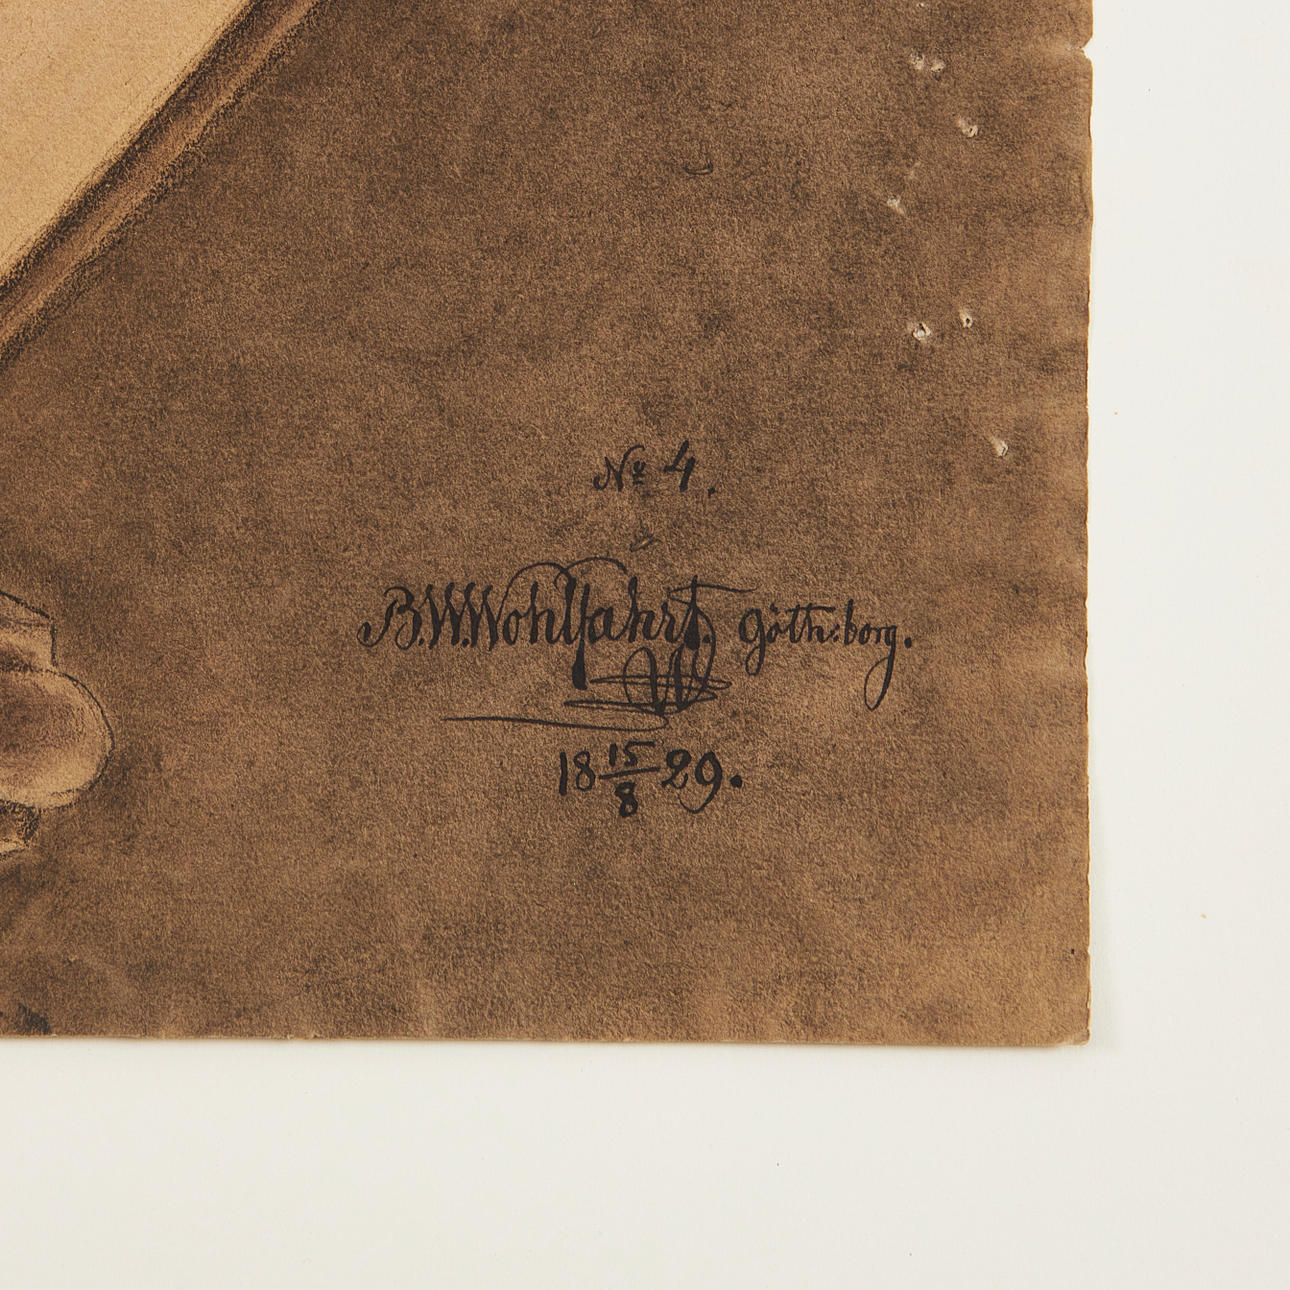 No 4.
B.W.Wohlfahrt. Göth:borg.
18 15/8 29.